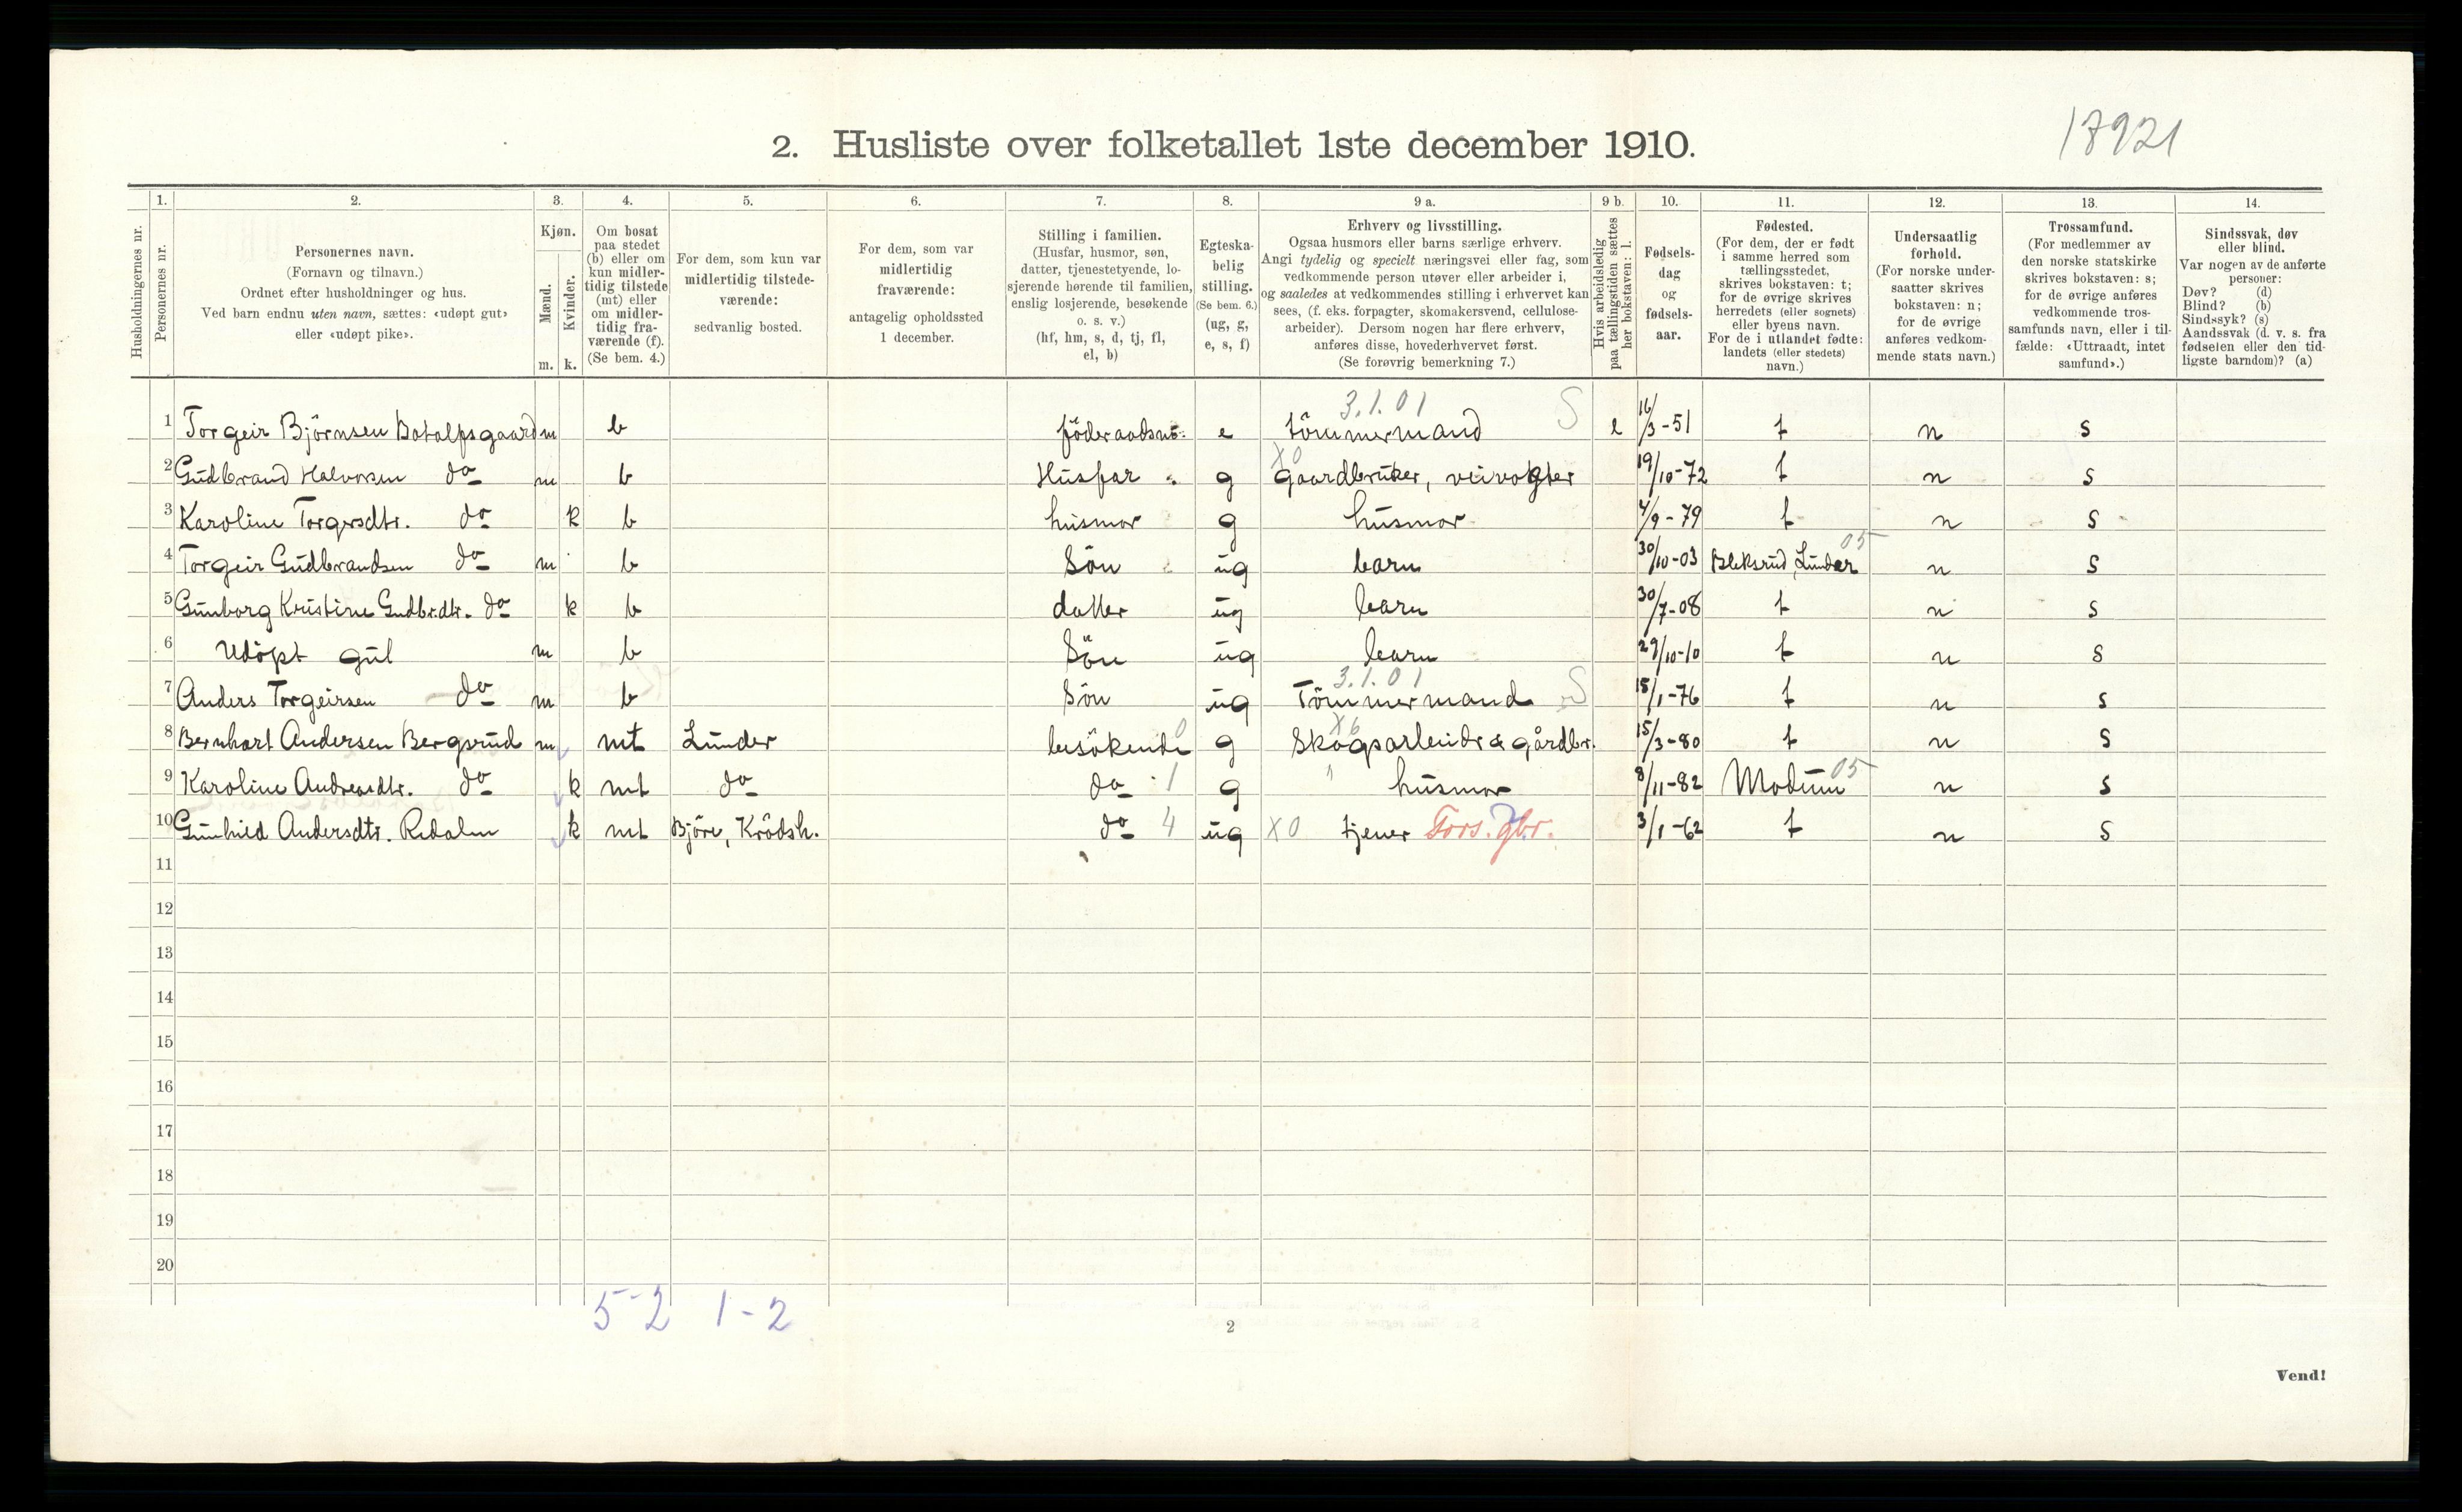 17921
2. Husliste over folketallet 1ste december 1910.
1. 2. 3. 4. 5. 6. 7. 8. 9 a. 9 b. 10. 11. 12. 13. 14.
Husholdningernes nr.
Personernes nr.
Personernes navn.
(Fornavn og tilnavn.)
Ordnet efter husholdninger og hus.
Ved barn endnu uten navn, sættes: «udøpt gut»
eller «udøpt pike».
Kjøn.
Mænd.
Kvinder.
m. k.
Om bosat
paa stedet
(b) eller om
kun midler-
tidig tilstede
(mt) eller
om midler-
tidig fra-
værende (f).
(Se bem. 4.)
For dem, som kun var
midlertidig tilstede-
værende:
sedvanlig bosted.
For dem, som var
midlertidig
fraværende:
antagelig opholdssted
1 december.
Stilling i familien.
(Husfar, husmor, søn,
datter, tjenestetyende, lo-
sjerende hørende til familien,
enslig losjerende, besøkende
o. s. v.)
(hf, hm, s, d, tj, fl,
el, b)
Egteska-
belig
stilling.
(Se bem. 6.)
(ug, g,
e, s, f)
Erhverv og livsstilling.
Ogsaa husmors eller barns særlige erhverv.
Angi tydelig og specielt næringsvei eller fag, som
vedkommende person utøver eller arbeider i,
og saaledes at vedkommendes stilling i erhvervet kan
sees, (f. eks. forpagter, skomakersvend, cellulose-
arbeider). Dersom nogen har flere erhverv,
anføres disse, hovederhvervet først.
(Se forøvrig bemerkning 7.)
Hvis arbeidsledig
paa tællingstiden sættes
her bokstaven: l.
Fødsels-
dag
og
fødsels-
aar.
Fødested.
(For dem, der er født
i samme herred som
tællingsstedet,
skrives bokstaven: t;
for de øvrige skrives
herredets (eller sognets)
eller byens navn.
For de i utlandet fødte:
landets (eller stedets)
navn.)
Undersaatlig
forhold.
(For norske under-
saatter skrives
bokstaven: n;
for de øvrige
anføres vedkom-
mende stats navn.)
Trossamfund.
(For medlemmer av
den norske statskirke
skrives bokstaven: s;
for de øvrige anføres
vedkommende tros-
samfunds navn, eller i til-
fælde: «Uttraadt, intet
samfund».)
Sindssvak, døv
eller blind.
Var nogen av de anførte
personer:
Døv? (d)
Blind? (b)
Sindssyk? (s)
Aandssvak (d. v. s. fra
fødselen eller den tid-
ligste barndom)? (a)
3.1.01 S
1 Torgeir Björnsen Botolfsgaard m b e tömmermand l 16/3-51 t n s
X0
2 Gudbrand Halvorsen do m b Husfar g gaardbruker, veivogter 19/10-72 t n s
3 Karoline Torgersdtr. do k b husmor g husmor 4/9-79 t n s
05
4 Torgeir Gudbrandsen do m b Sön ug barn 30/10-03 Bleksrud, Lunder n s
5 Gunborg Kristine Gudbr.dtr. do k b datter ug barn 30/7-08 t n s
6 Udöpt gut m b Sön ug barn 29/10-10 t n s
3.1.01 S
7 Anders Torgeirsen do m b Sön ug Tömmermand 15/1-76 t n s
0 X6
8 Bernhart Andersen Bergsrud m mt Lunder besökende g Skogsarbeider & gårdbr. 15/3-80 t n s
05
9 Karoline Andreasdtr. do k mt do do 1 g " husmor 8/11-82 Modum n s
10 Gunhild Andersdtr. Redalen k mt Björe, Krödsh. do 4 ug X0 tjener Fors. gbr. 3/1-62 t n s
11
12
13
14
15
16
17
18
19
20
5-2 1-2
2
Vend!